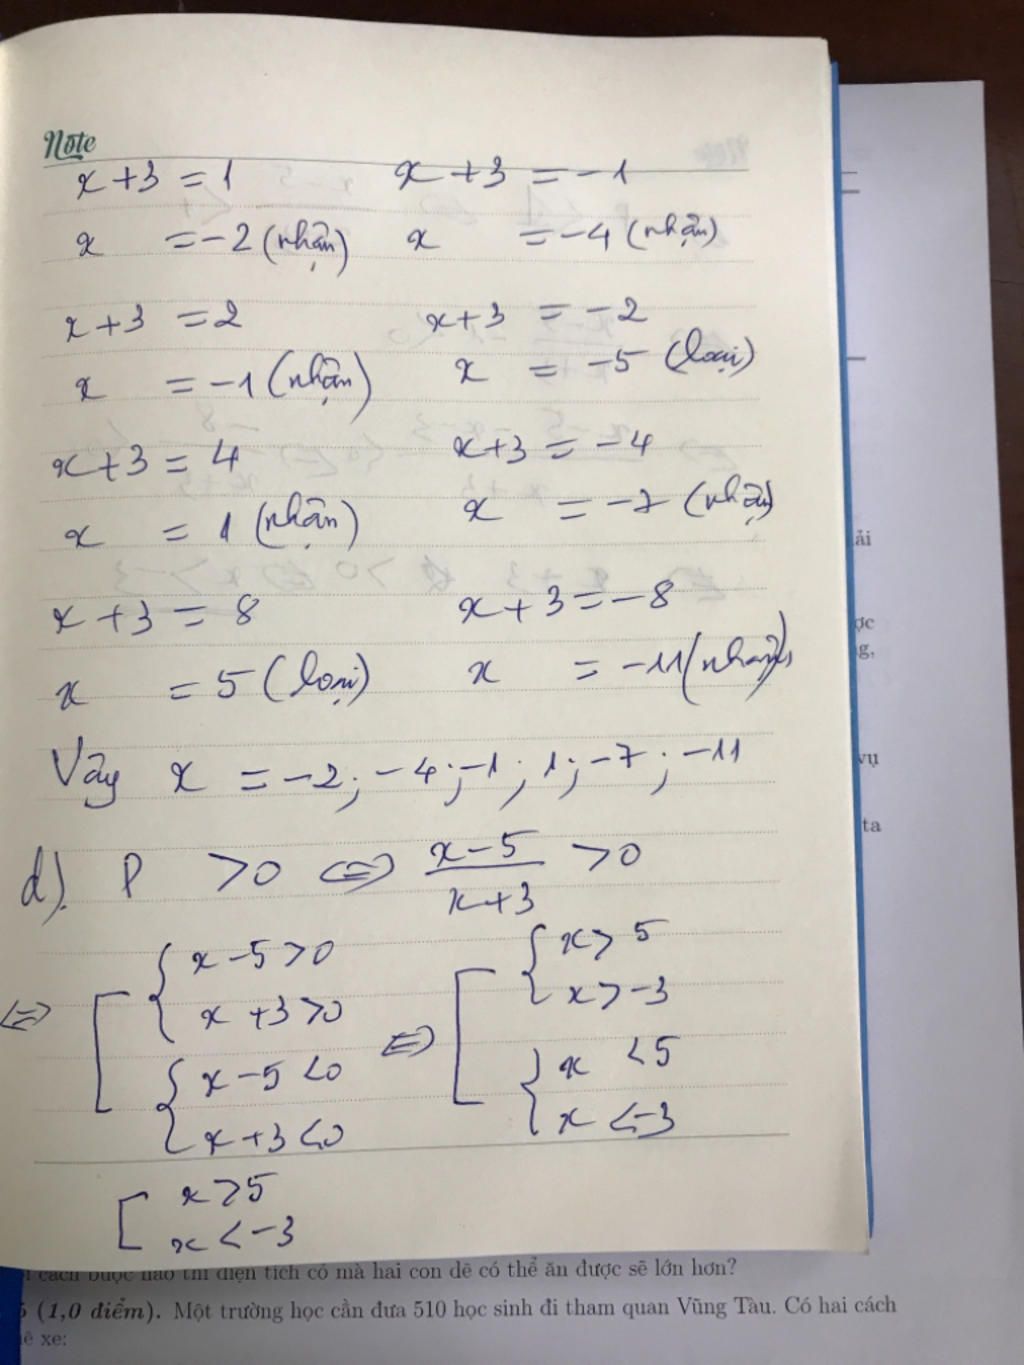 Note
x+3 = 1 x+3 = -1
x = -2 (nhận) x = -4 (nhận)
x+3 = 2 x+3 = -2
x = -1 (nhận) x = -5 (loại)
x+3 = 4 x+3 = -4
x = 1 (nhận) x = -7 (nhận)
x+3 = 8 x+3 = -8
x = 5 (loại) x = -11 (nhận)
Vậy x = -2; -4; -1; 1; -7; -11
d). P > 0 ⇔ x-5 > 0
x+3
x-5 > 0 x > 5
⇔ x+3 > 0 ⇔ x > -3
x-5 < 0 x < 5
x+3 < 0 x < -3
[ x > 5
x < -3
ải
ợc
g,
vụ
ta
cách buộc nào thì diện tích cỏ mà hai con dê có thể ăn được sẽ lớn hơn?
(1,0 điểm). Một trường học cần đưa 510 học sinh đi tham quan Vũng Tàu. Có hai cách
ê xe: